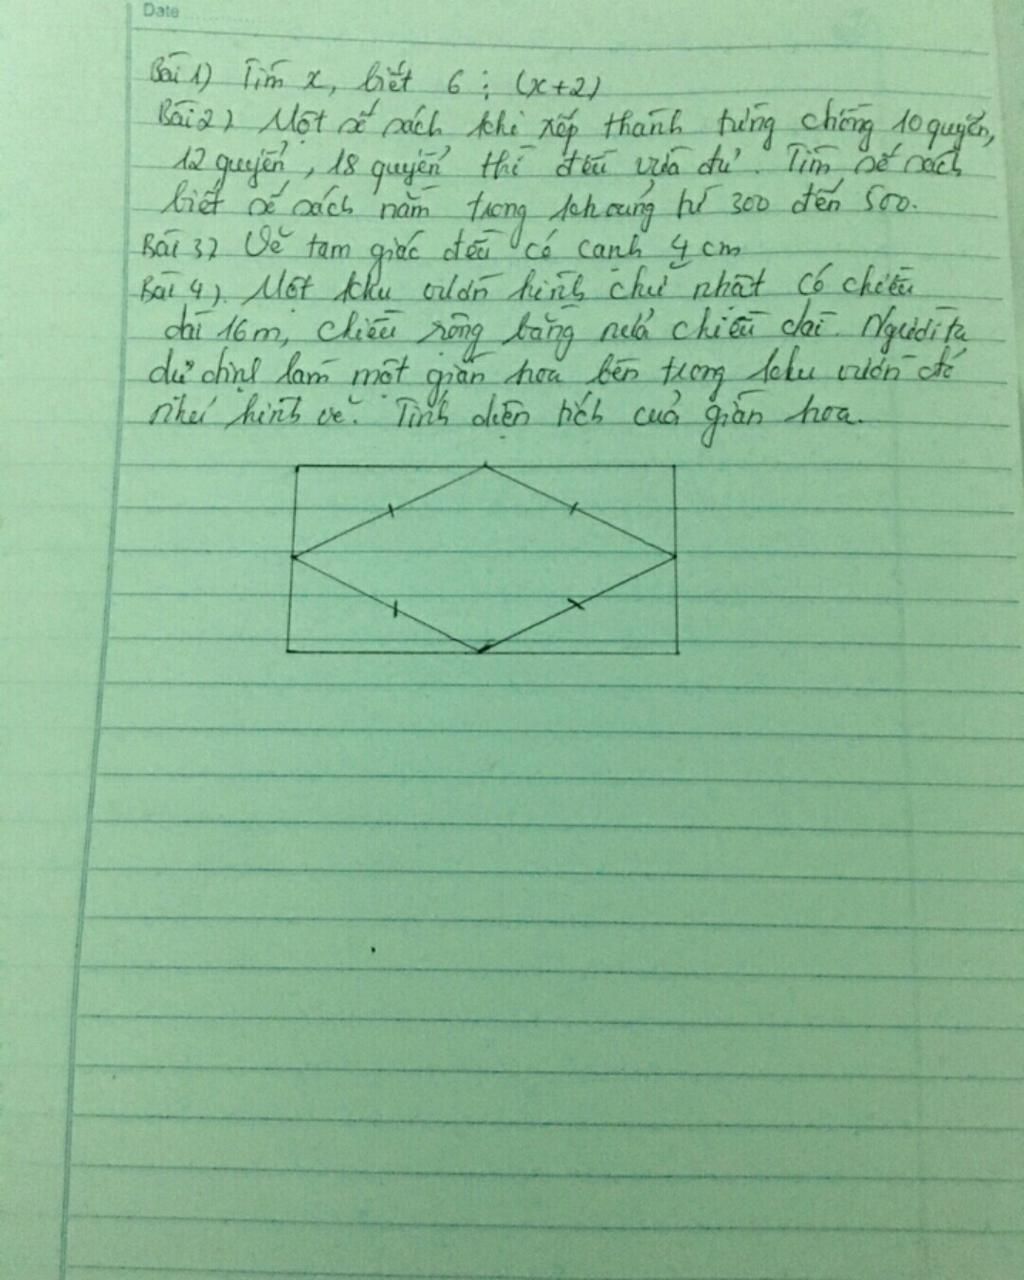 Date
Bài 1) Tìm x, biết 6 ⋮ (x+2)
Bài 2) Một số sách khi xếp thành từng chồng 10 quyển,
12 quyển, 18 quyển thì đều vừa đủ. Tìm số sách
biết số sách nằm trong khoảng từ 300 đến 500.
Bài 3) Vẽ tam giác đều có cạnh 4 cm
Bài 4). Một khu vườn hình chữ nhật có chiều
dài 16m, chiều rộng bằng nửa chiều dài. Người ta
dự định làm một giàn hoa bên trong khu vườn đó
như hình vẽ. Tính diện tích của giàn hoa.